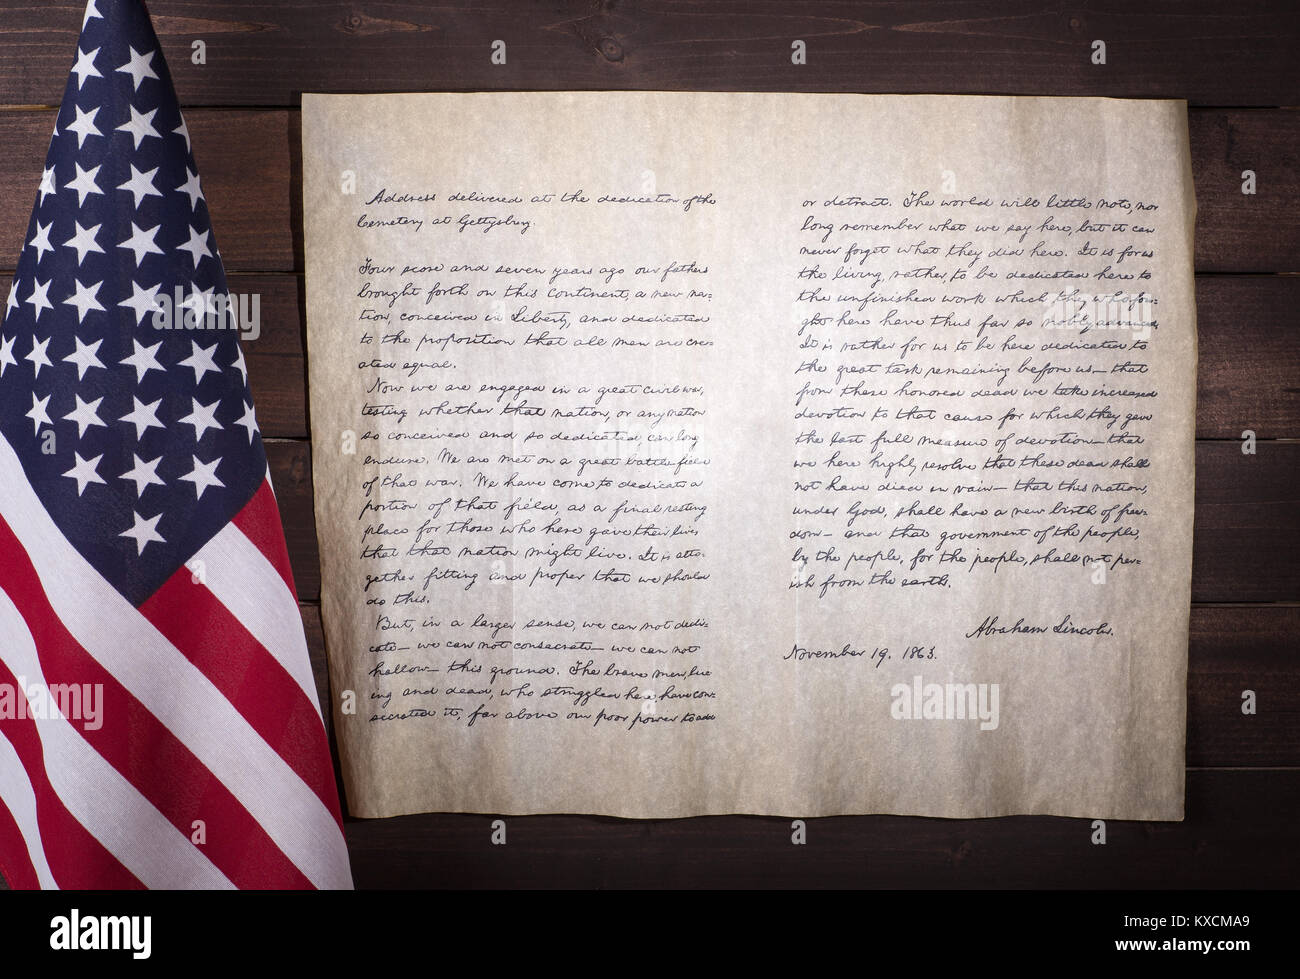 Address delivered at the dedication of the
Cemetery at Gettysburg.
Four score and seven years ago our fathers
brought forth on this continent, a new na-
tion, conceived in Liberty, and dedicated
to the proposition that all men are cre-
ated equal.
Now we are engaged in a great civil war,
testing whether that nation, or any nation
so conceived and so dedicated, can long
endure. We are met on a great battle field
of that war. We have come to dedicate a
portion of that field, as a final resting
place for those who here gave their lives
that that nation might live. It is alto-
gether fitting and proper that we should
do this.
But, in a larger sense, we can not dedi-
cate— we can not consecrate— we can not
hallow— this ground. The brave men, liv-
ing and dead, who struggled here have con-
secrated it, far above our poor power to add
or detract. The world will little note, nor
long remember what we say here, but it can
never forget what they did here. It is for us
the living, rather, to be dedicated here to
the unfinished work which they who fou-
ght here have thus far so nobly advanced.
It is rather for us to be here dedicated to
the great task remaining before us— that
from these honored dead we take increased
devotion to that cause for which they gave
the last full measure of devotion— that
we here highly resolve that these dead shall
not have died in vain— that this nation,
under God, shall have a new birth of free-
dom— and that government of the people,
by the people, for the people, shall not per-
ish from the earth.
Abraham Lincoln.
November 19, 1863.
a
alamy stock photo
alamy
KXCMA9
www.alamy.com